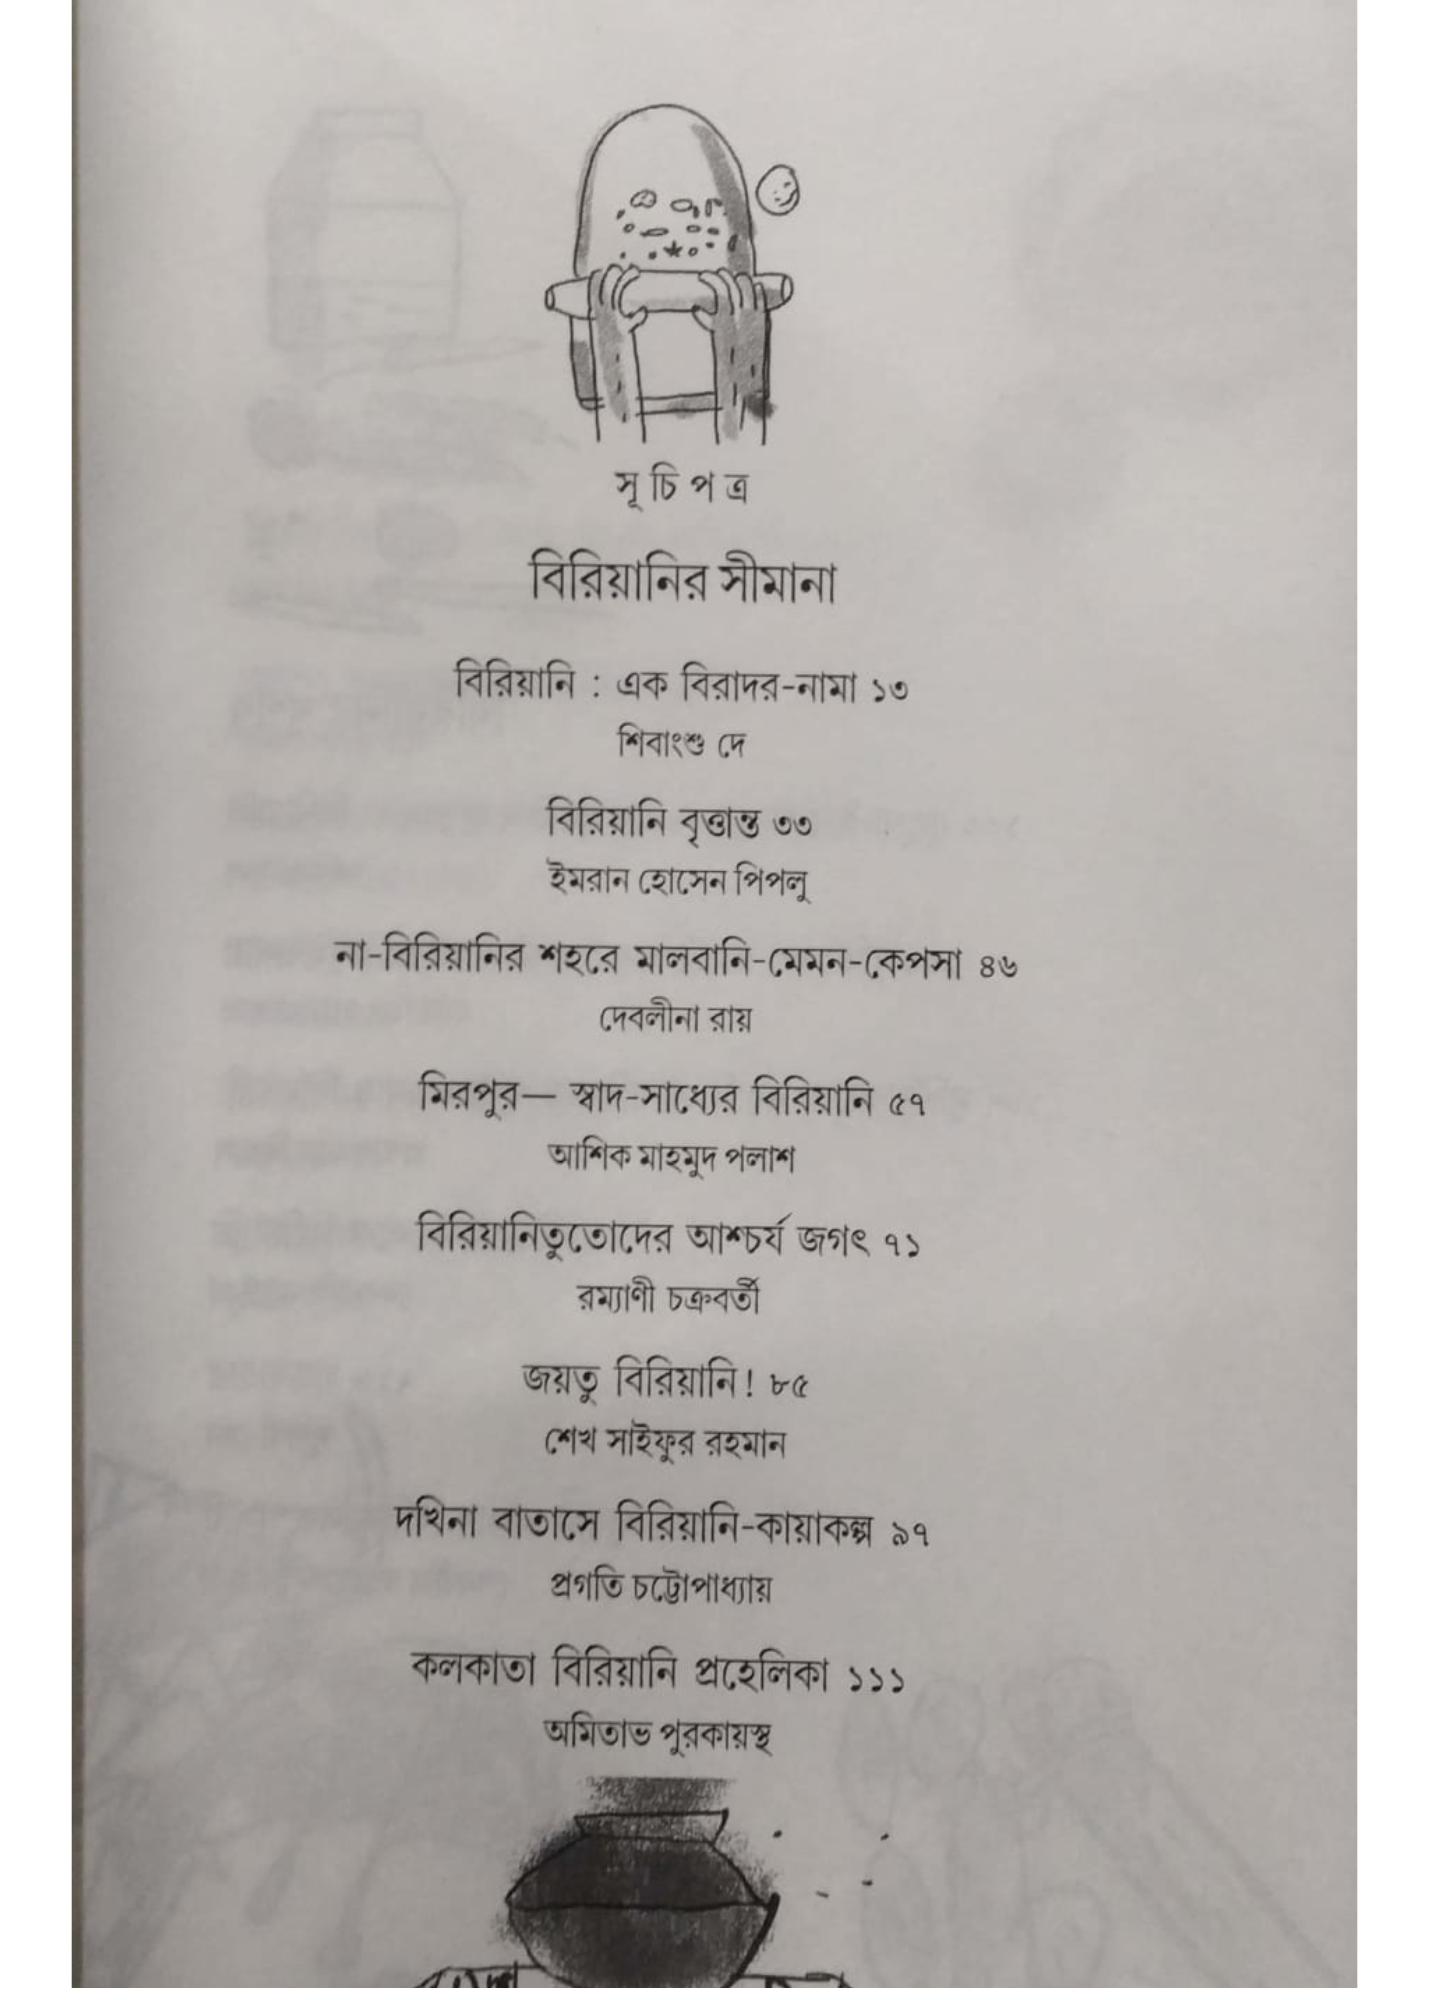 সূ চি প ত্র
বিরিয়ানির সীমানা
বিরিয়ানি : এক বিরাদর-নামা ১৩
শিবাংশু দে
বিরিয়ানি বৃত্তান্ত ৩৩
ইমরান হোসেন পিপলু
না-বিরিয়ানির শহরে মালবানি-মেমন-কেপসা ৪৬
দেবলীনা রায়
মিরপুর— স্বাদ-সাধ্যের বিরিয়ানি ৫৭
আশিক মাহমুদ পলাশ
বিরিয়ানিতুতোদের আশ্চর্য জগৎ ৭১
রম্যাণী চক্রবর্তী
জয়তু বিরিয়ানি! ৮৫
শেখ সাইফুর রহমান
দখিনা বাতাসে বিরিয়ানি-কায়াকল্প ৯৭
প্রগতি চট্টোপাধ্যায়
কলকাতা বিরিয়ানি প্রহেলিকা ১১১
অমিতাভ পুরকায়স্থ